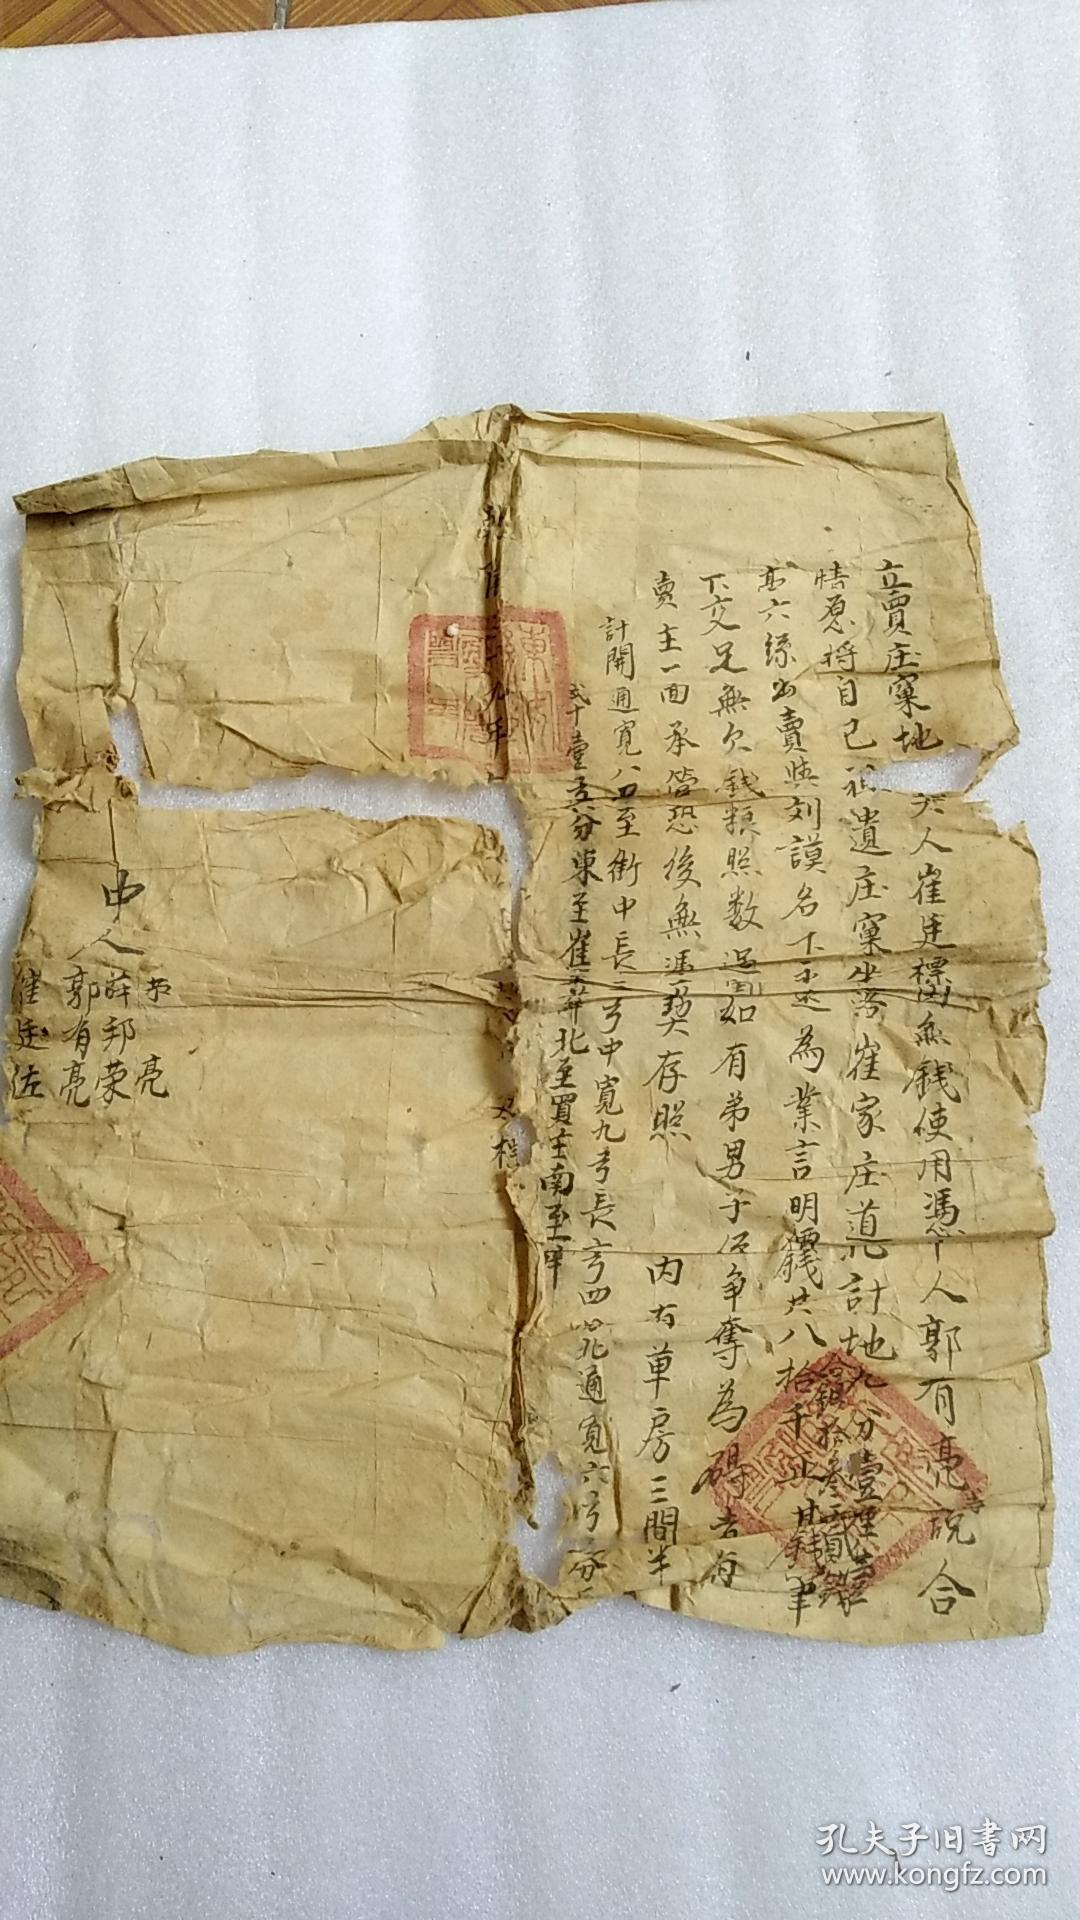 立賣庄窠地 人崔廷標因無錢使用憑中人郭有亮等説合
情愿將自己祖遺庄窠坐落崔家庄道北計地九分壹厘壹
毫六絲出賣與刘謨名下永遠為業言明價錢共八拾千止其錢筆
合銀拾叁 貳錢
下交足無欠錢粮照数過割如有弟男子侄争奪為碍者有
賣主一面承管恐後無凴立契存照 内有草房三間半
計開通寛八 至街中長 弓中寛九弓長 弓四 北通寛六弓 分
弍十壹 五分東至崔 北至買主南至
乾隆 十九年
中人
郭有亮
薛邦荣
亮
崔廷佐
孔夫子旧書网
www.kongfz.com